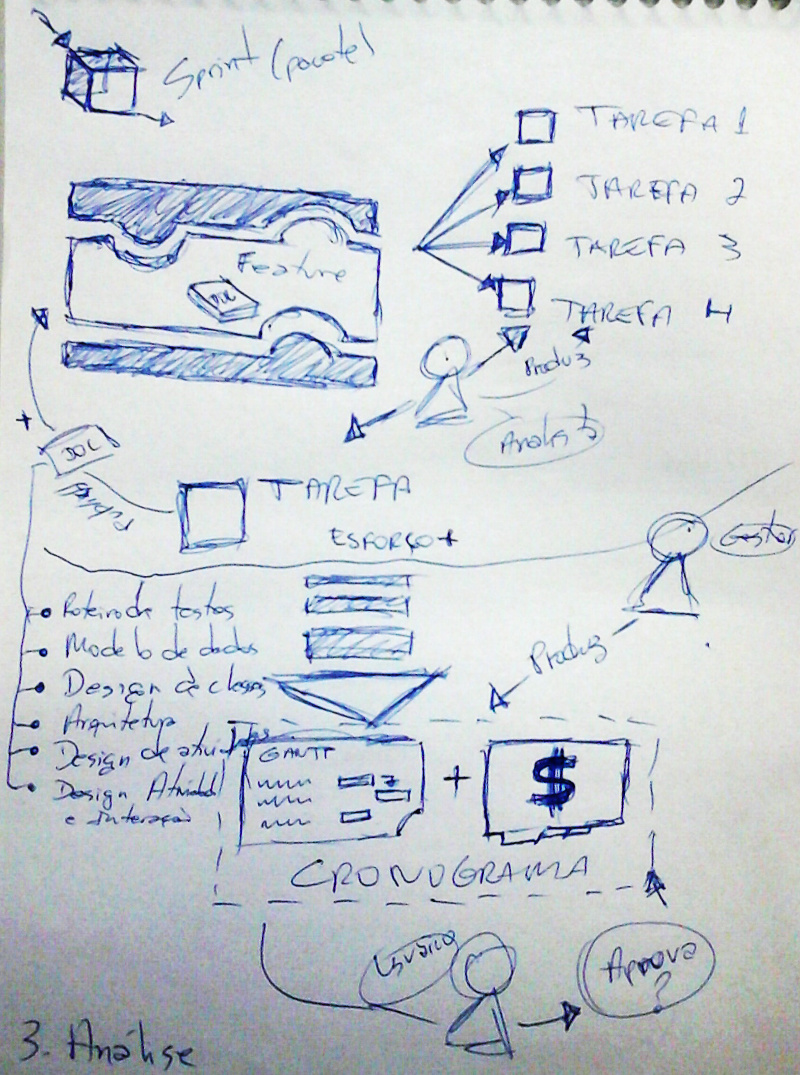 Sprint (pacote)
TAREFA 1
TAREFA 2
TAREFA 3
TAREFA 4
Feature
DOC
Produz
Analista
+
DOC
TAREFA
ESFORÇO +
Gestor
Roteiro de testes
Modelo de dados
Design de classes
Arquitetura
Design de atividades
Design Atividad
e interação
Produz
GANTT
+
$
CRONOGRAMA
Usuário
Aprova
?
3. Análise